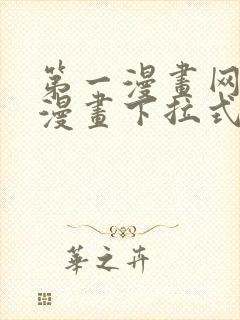 第一漫畫网
漫畫下拉式
華之卉